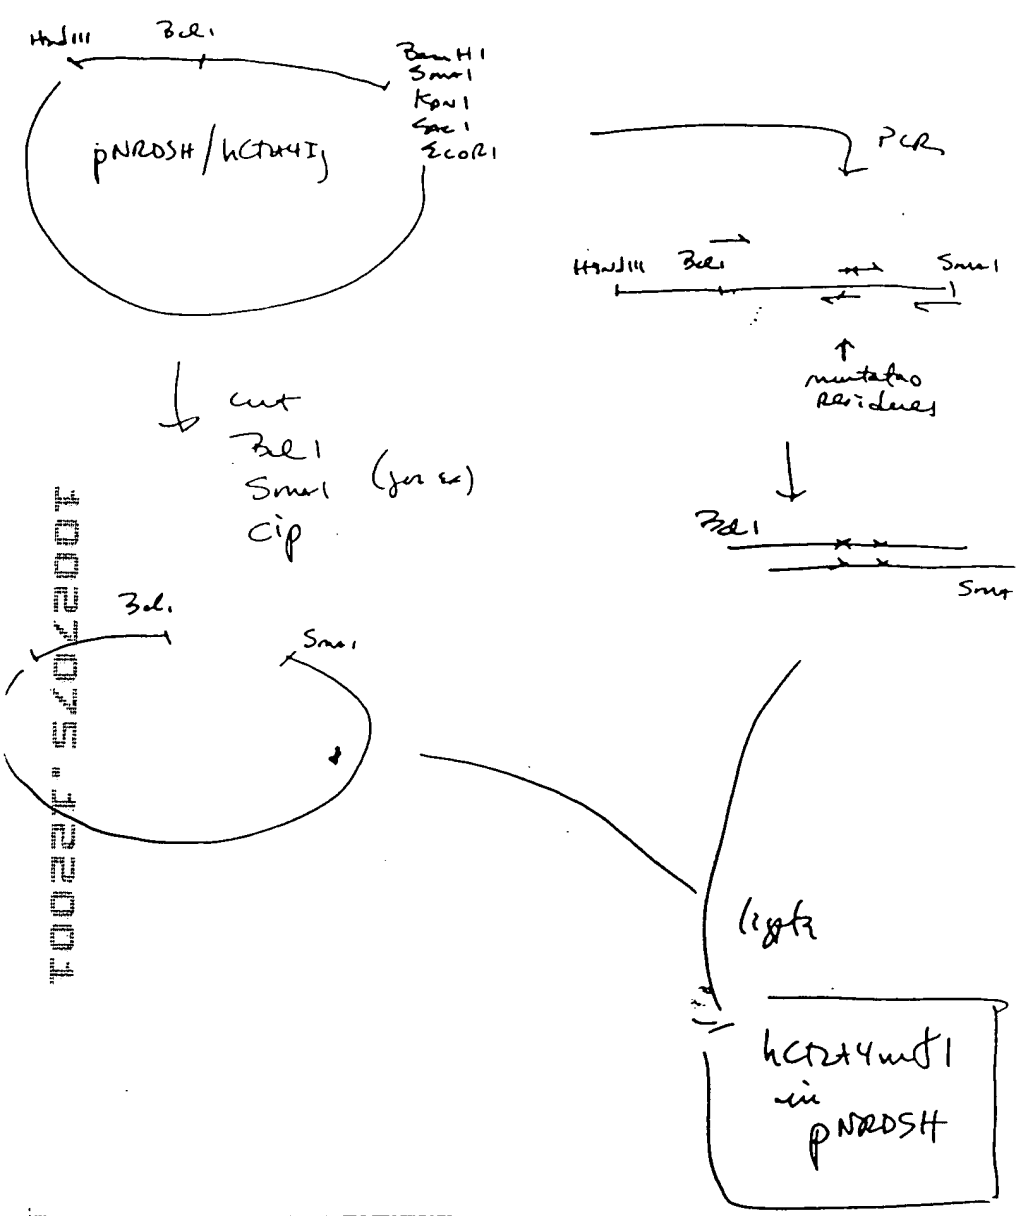 HindIII Bcl1
BamH1
Sma1
Kpn1
Sac1
EcoR1
pNRDSH/hCTLA4Ig
PCR
HindIII Bcl1 Sma1
mutate
residues
cut
Bcl1
Sma1 (for ex)
cip
Bcl1
Sma
Bcl1 Sma1
10027075.122001
ligate
hCTLA4mt1
in
pNRDSH